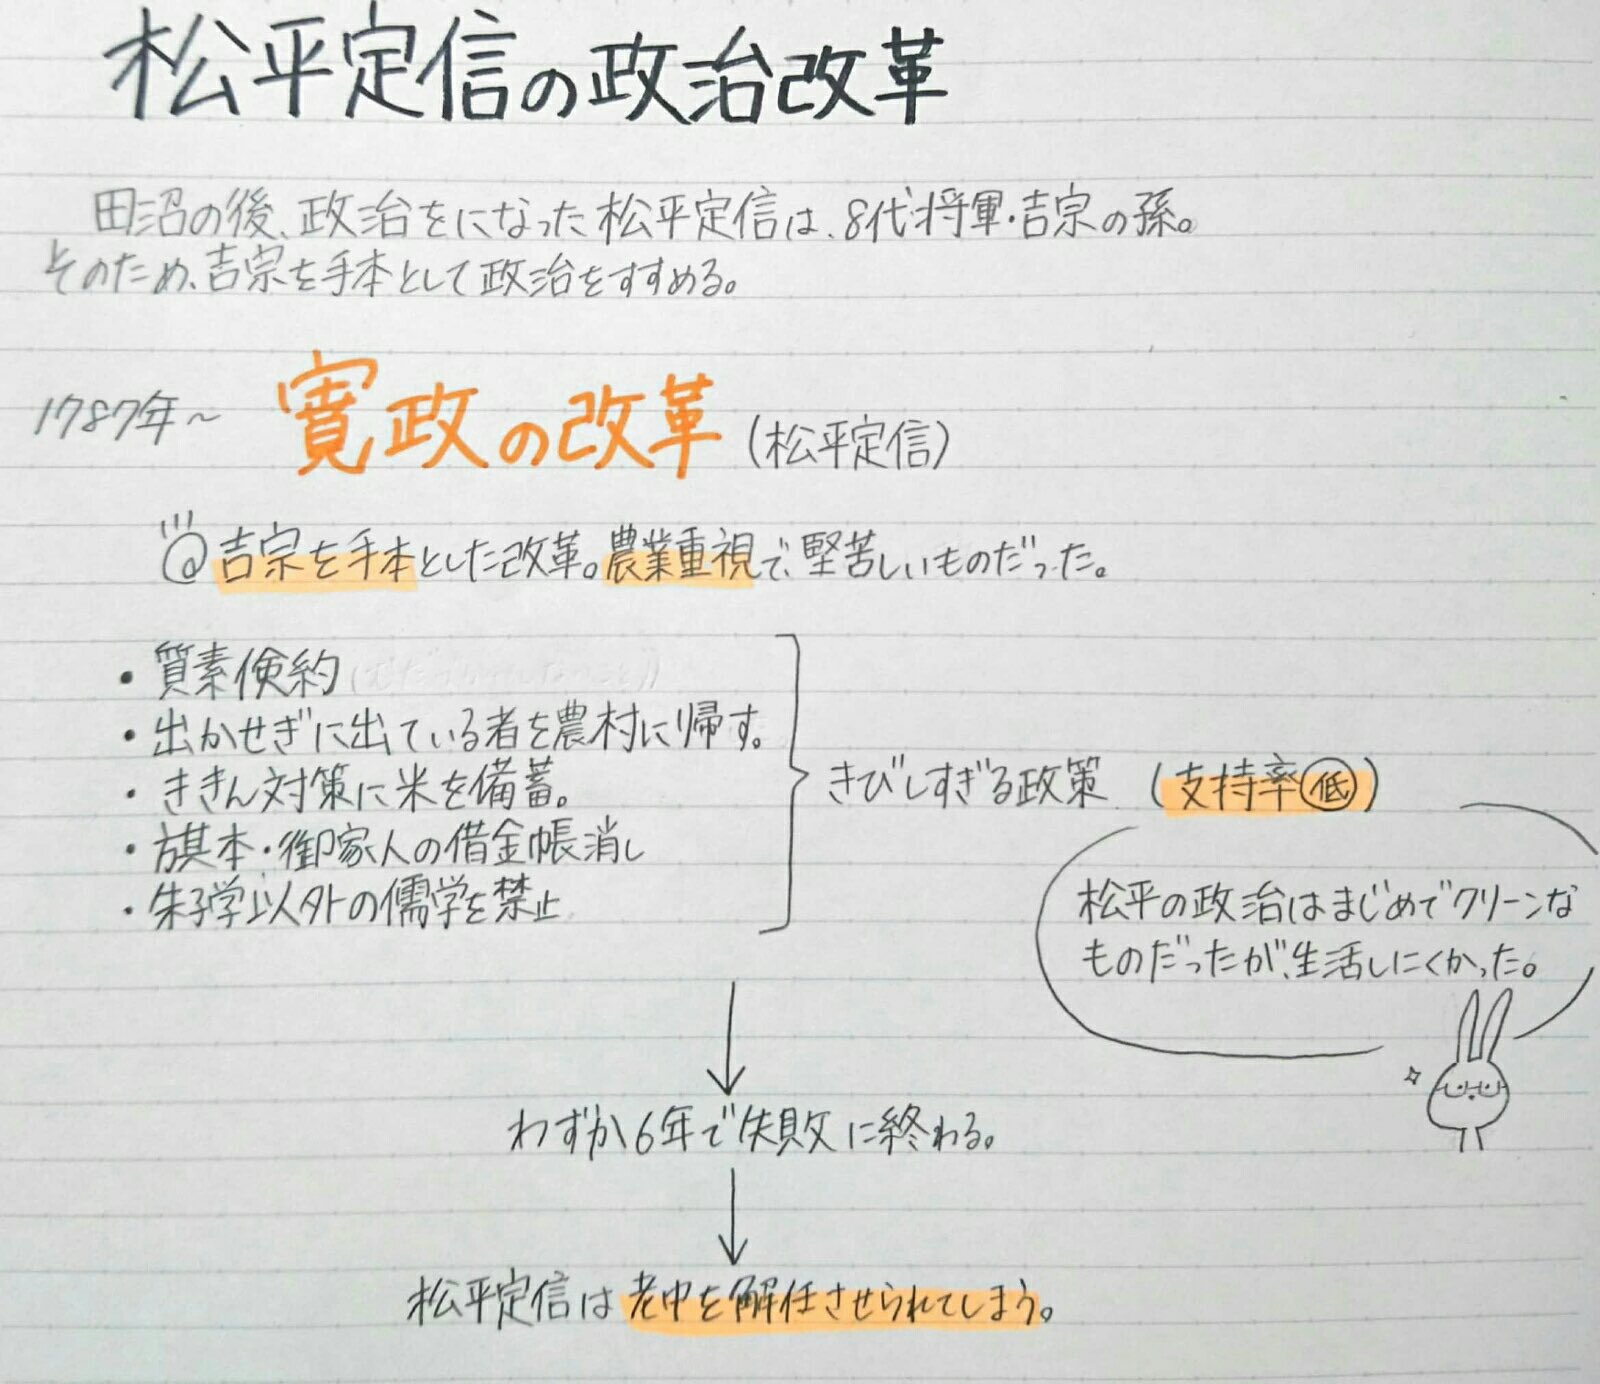 松平定信の政治改革
田沼の後、政治をになった松平定信は、8代将軍・吉宗の孫。
そのため、吉宗を手本として政治をすすめる。
1787年~ 寛政の改革 (松平定信)
吉宗を手本とした改革。農業重視で、堅苦しいものだった。
・質素倹約
・出かせぎに出ている者を農村に帰す。
・ききん対策に米を備蓄。
・旗本・御家人の借金帳消し
・朱子学以外の儒学を禁止
きびしすぎる政策 (支持率低)
松平の政治はまじめでクリーンな
ものだったが、生活しにくかった。
わずか6年で失敗に終わる。
松平定信は老中を解任させられてしまう。